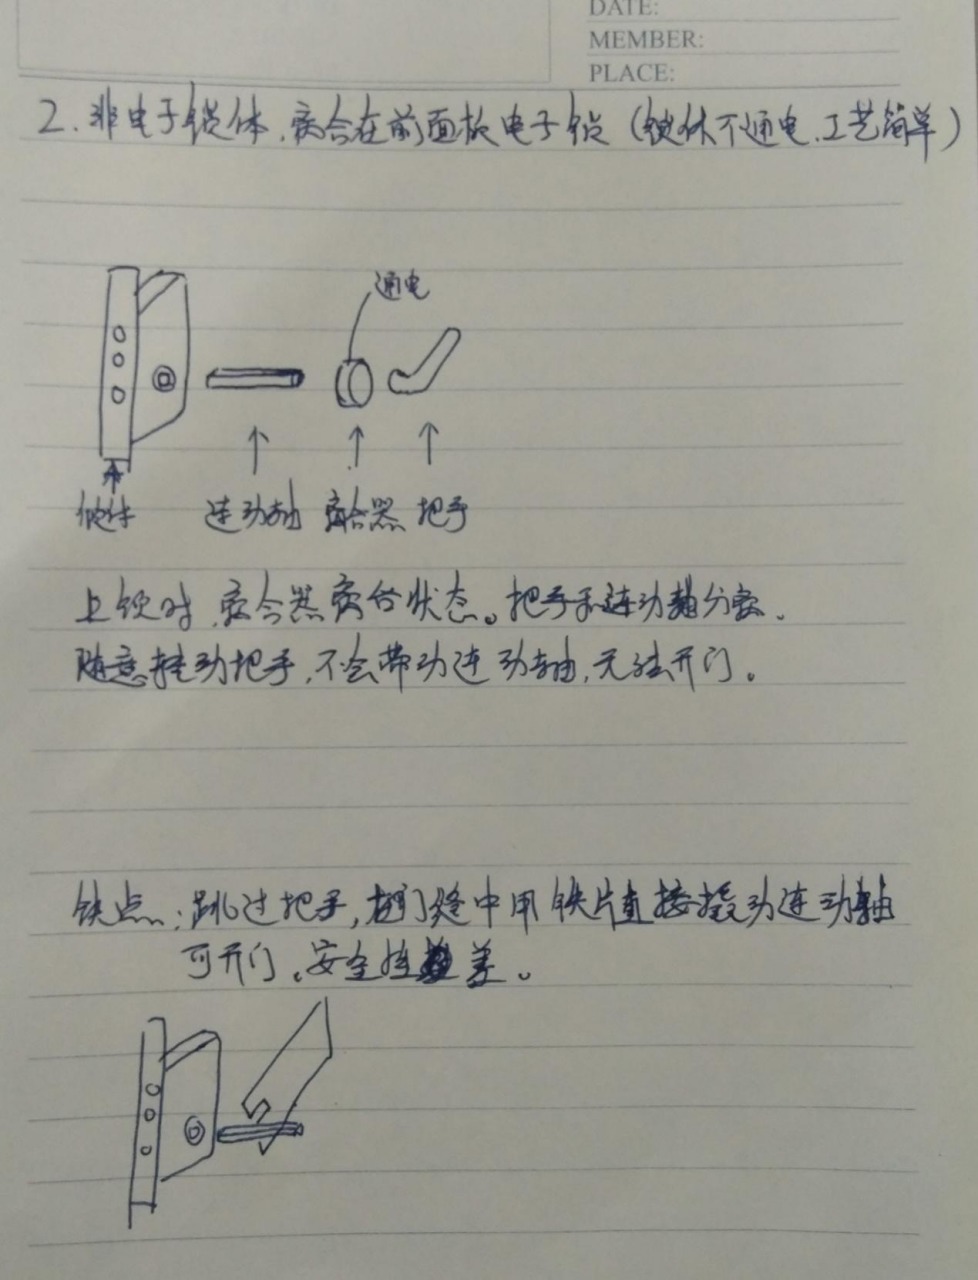 DATE:
MEMBER:
PLACE:
2. 非电子锁体,离合在前面板电子锁(锁体不通电,工艺简单)
通电
锁体 连动轴 离合器 把手
上锁时,离合器离合状态。把手和连动轴分离.
随意转动把手,不会带动连动轴,无法开门。
缺点:跳过把手,在门缝中用铁片直接拨动连动轴
可开门,安全性差。